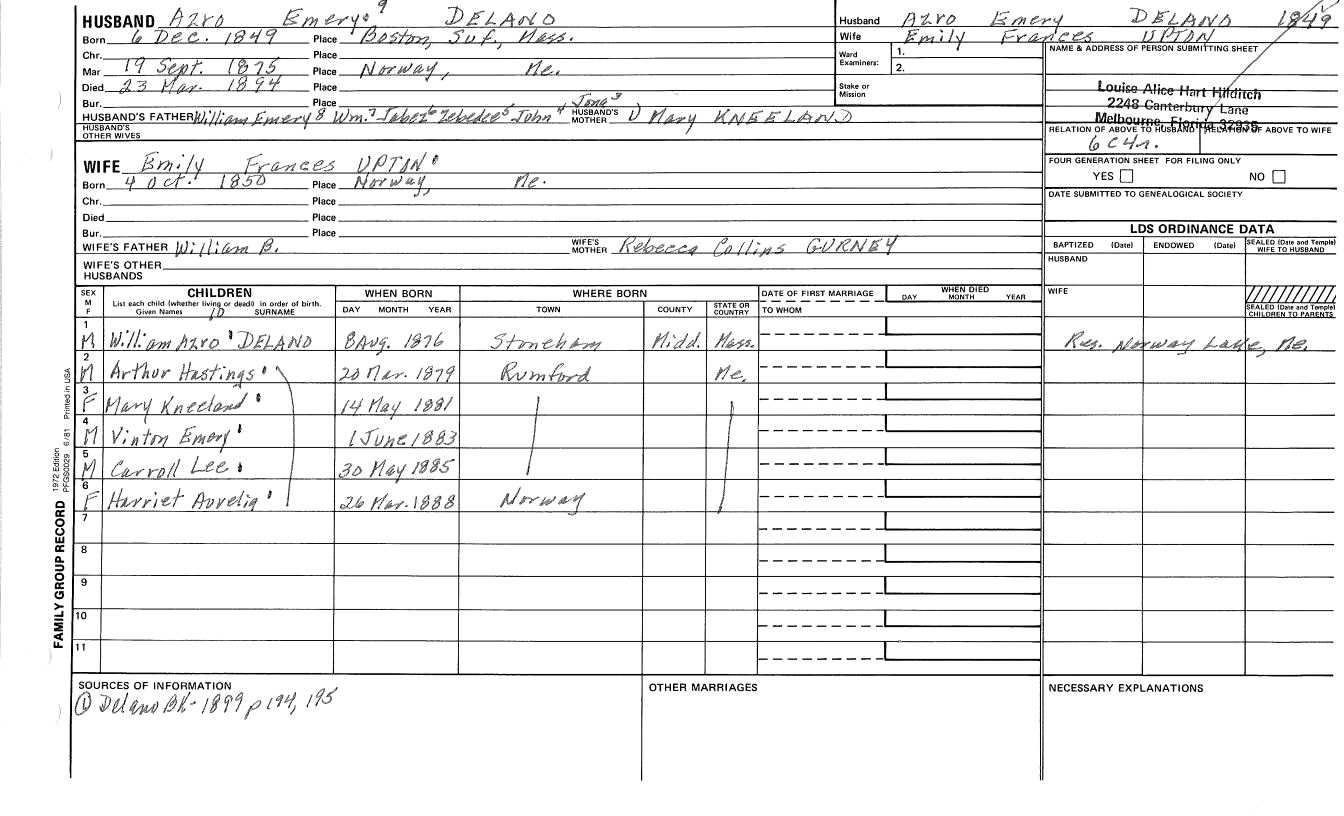 HUSBAND Azro Emery 9 DELANO
Born 6 Dec. 1849 Place Boston, Suf, Mass.
Chr. Place
Mar 19 Sept. 1875 Place Norway, Me.
Died 23 Mar. 1894 Place
Bur. Place
HUSBAND'S FATHER William Emery 8 Wm. 7 Jabez 6 Zebedee 5 John 4 Jona 3 HUSBAND'S MOTHER 1) Mary KNEELAND
HUSBAND'S OTHER WIVES
WIFE Emily Frances UPTON 1
Born 4 Oct. 1850 Place Norway, Me.
Chr. Place
Died Place
Bur. Place
WIFE'S FATHER William B. WIFE'S MOTHER Rebecca Collins GURNEY
WIFE'S OTHER HUSBANDS
Husband Azro Emery DELANO 1849
Wife Emily Frances UPTON
Ward Examiners: 1.
2.
Stake or Mission
NAME & ADDRESS OF PERSON SUBMITTING SHEET
Louise Alice Hart Hilditch
2248 Canterbury Lane
Melbourne, Florida 32935
RELATION OF ABOVE TO HUSBAND RELATION OF ABOVE TO WIFE
6C4r.
FOUR GENERATION SHEET FOR FILING ONLY
YES NO
DATE SUBMITTED TO GENEALOGICAL SOCIETY
LDS ORDINANCE DATA
BAPTIZED (Date) ENDOWED (Date) SEALED (Date and Temple) WIFE TO HUSBAND
HUSBAND
WIFE
SEALED (Date and Temple) CHILDREN TO PARENTS
SEX M F CHILDREN WHEN BORN WHERE BORN DATE OF FIRST MARRIAGE WHEN DIED
List each child (whether living or dead) in order of birth.
Given Names 10 SURNAME DAY MONTH YEAR TOWN COUNTY STATE OR COUNTRY TO WHOM DAY MONTH YEAR
1 M William Azro 1 DELANO 8 Aug. 1876 Stoneham Midd. Mass. Res. Norway Lake, Me.
2 M Arthur Hastings 1 20 Mar. 1879 Rumford Me.
3 F Mary Kneeland 1 14 May 1881
4 M Vinton Emery 1 1 June 1883
5 M Carroll Lee 1 30 May 1885
6 F Harriet Aurelia 1 26 Mar. 1888 Norway
7
8
9
10
11
SOURCES OF INFORMATION
① Delano BK - 1899 p 194, 195
OTHER MARRIAGES
NECESSARY EXPLANATIONS
FAMILY GROUP RECORD 1972 Edition PFGS0029 6/81 Printed in USA